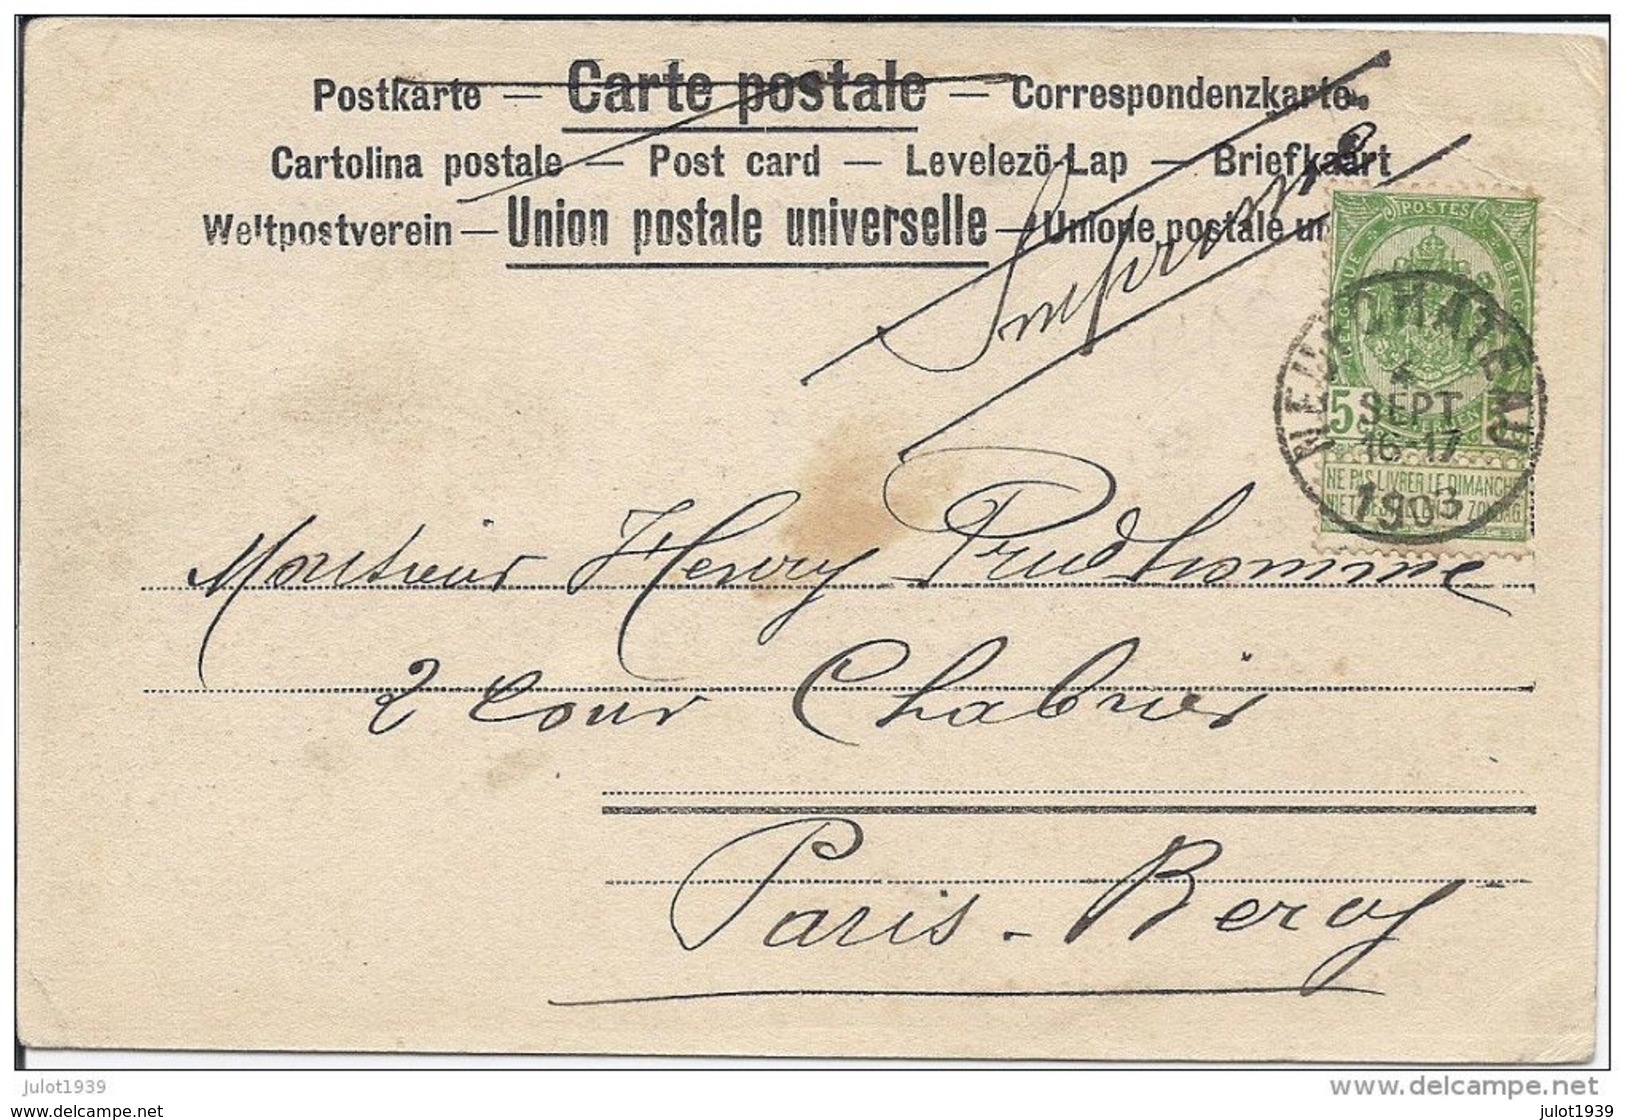 Postkarte — Carte postale — Correspondenzkarte.
Cartolina postale — Post card — Levelező-Lap — Briefkaart
Weltpostverein — Union postale universelle — Unione postale un
Imprimé
POSTES
BELGIQUE BELGIË
NEUFCHATEAU
4
SEPT
16-17
1903
5 5
NE PAS LIVRER LE DIMANCHE
NIET BESTELLEN OP ZONDAG
Monsieur Henry Prudhomme
2 Cour Chabrier
Paris - Bercy
julot1939
www.delcampe.net
www.delcampe.net
julot1939